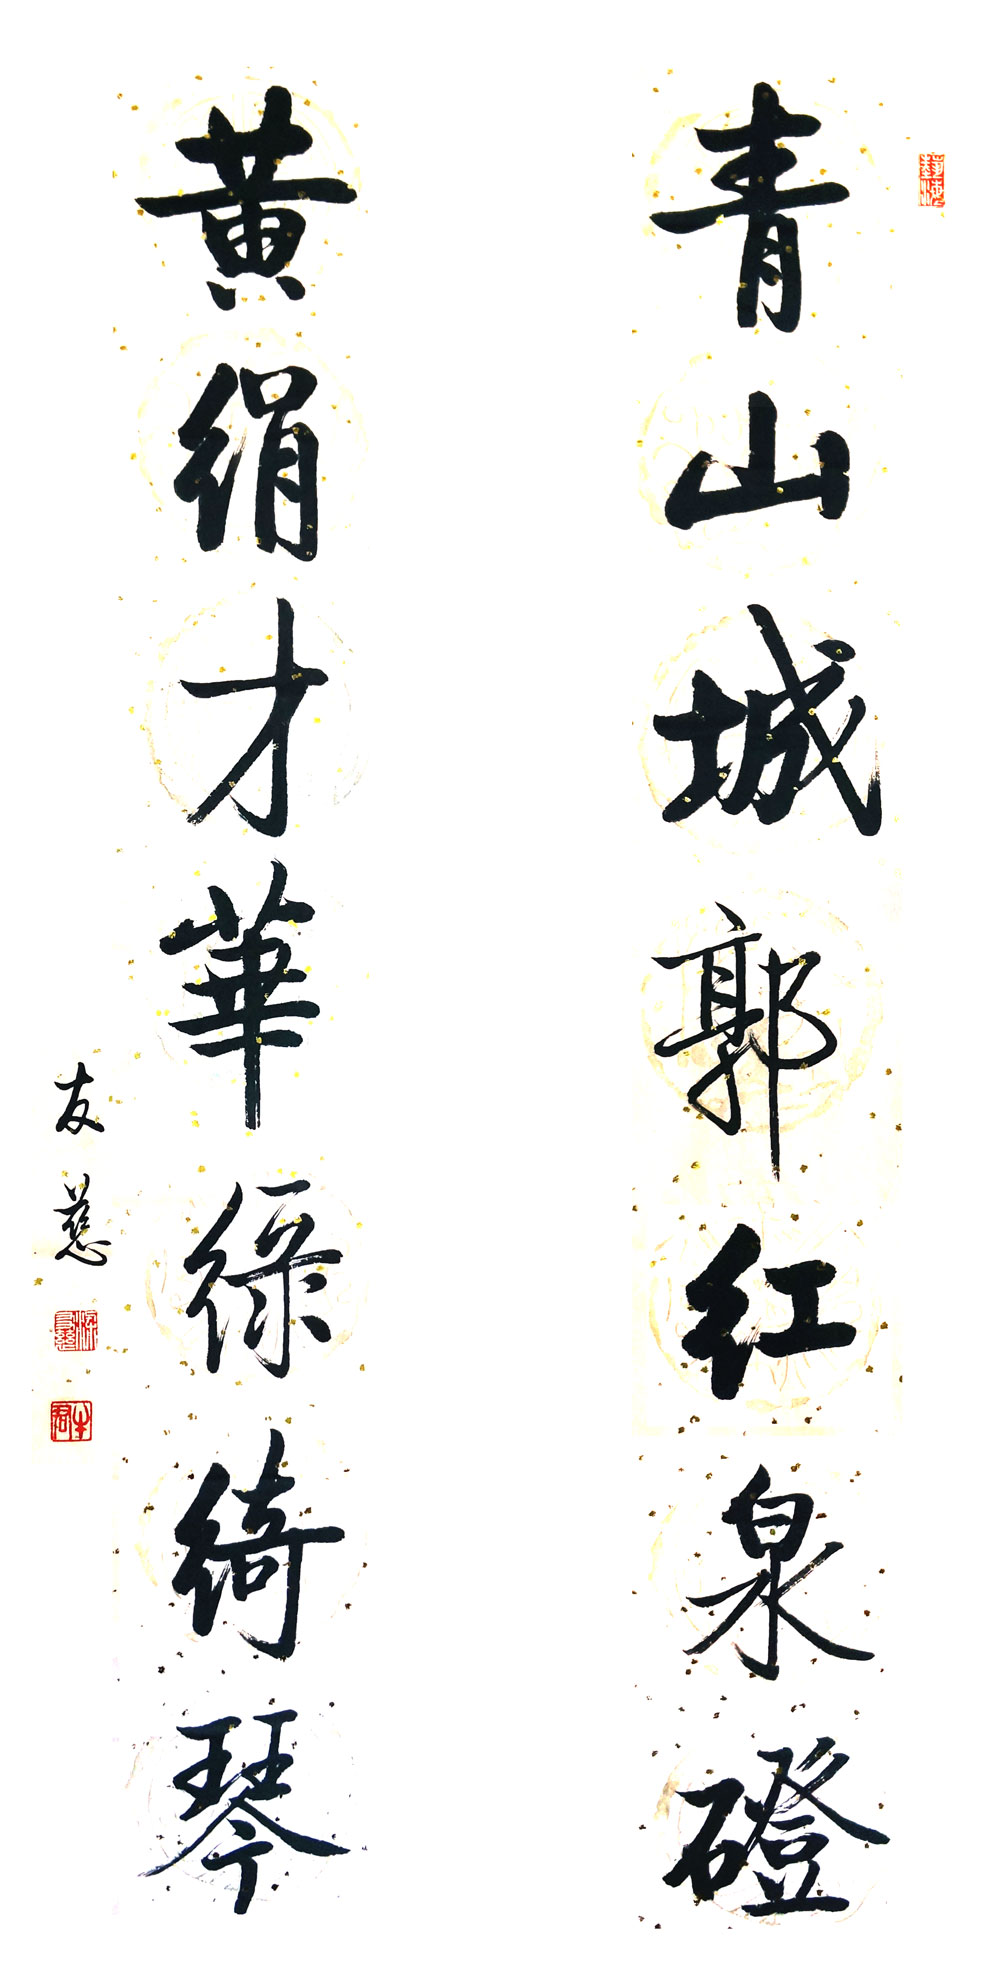 青山城郭红泉磴
黄絹才華綠綺琴
友慈